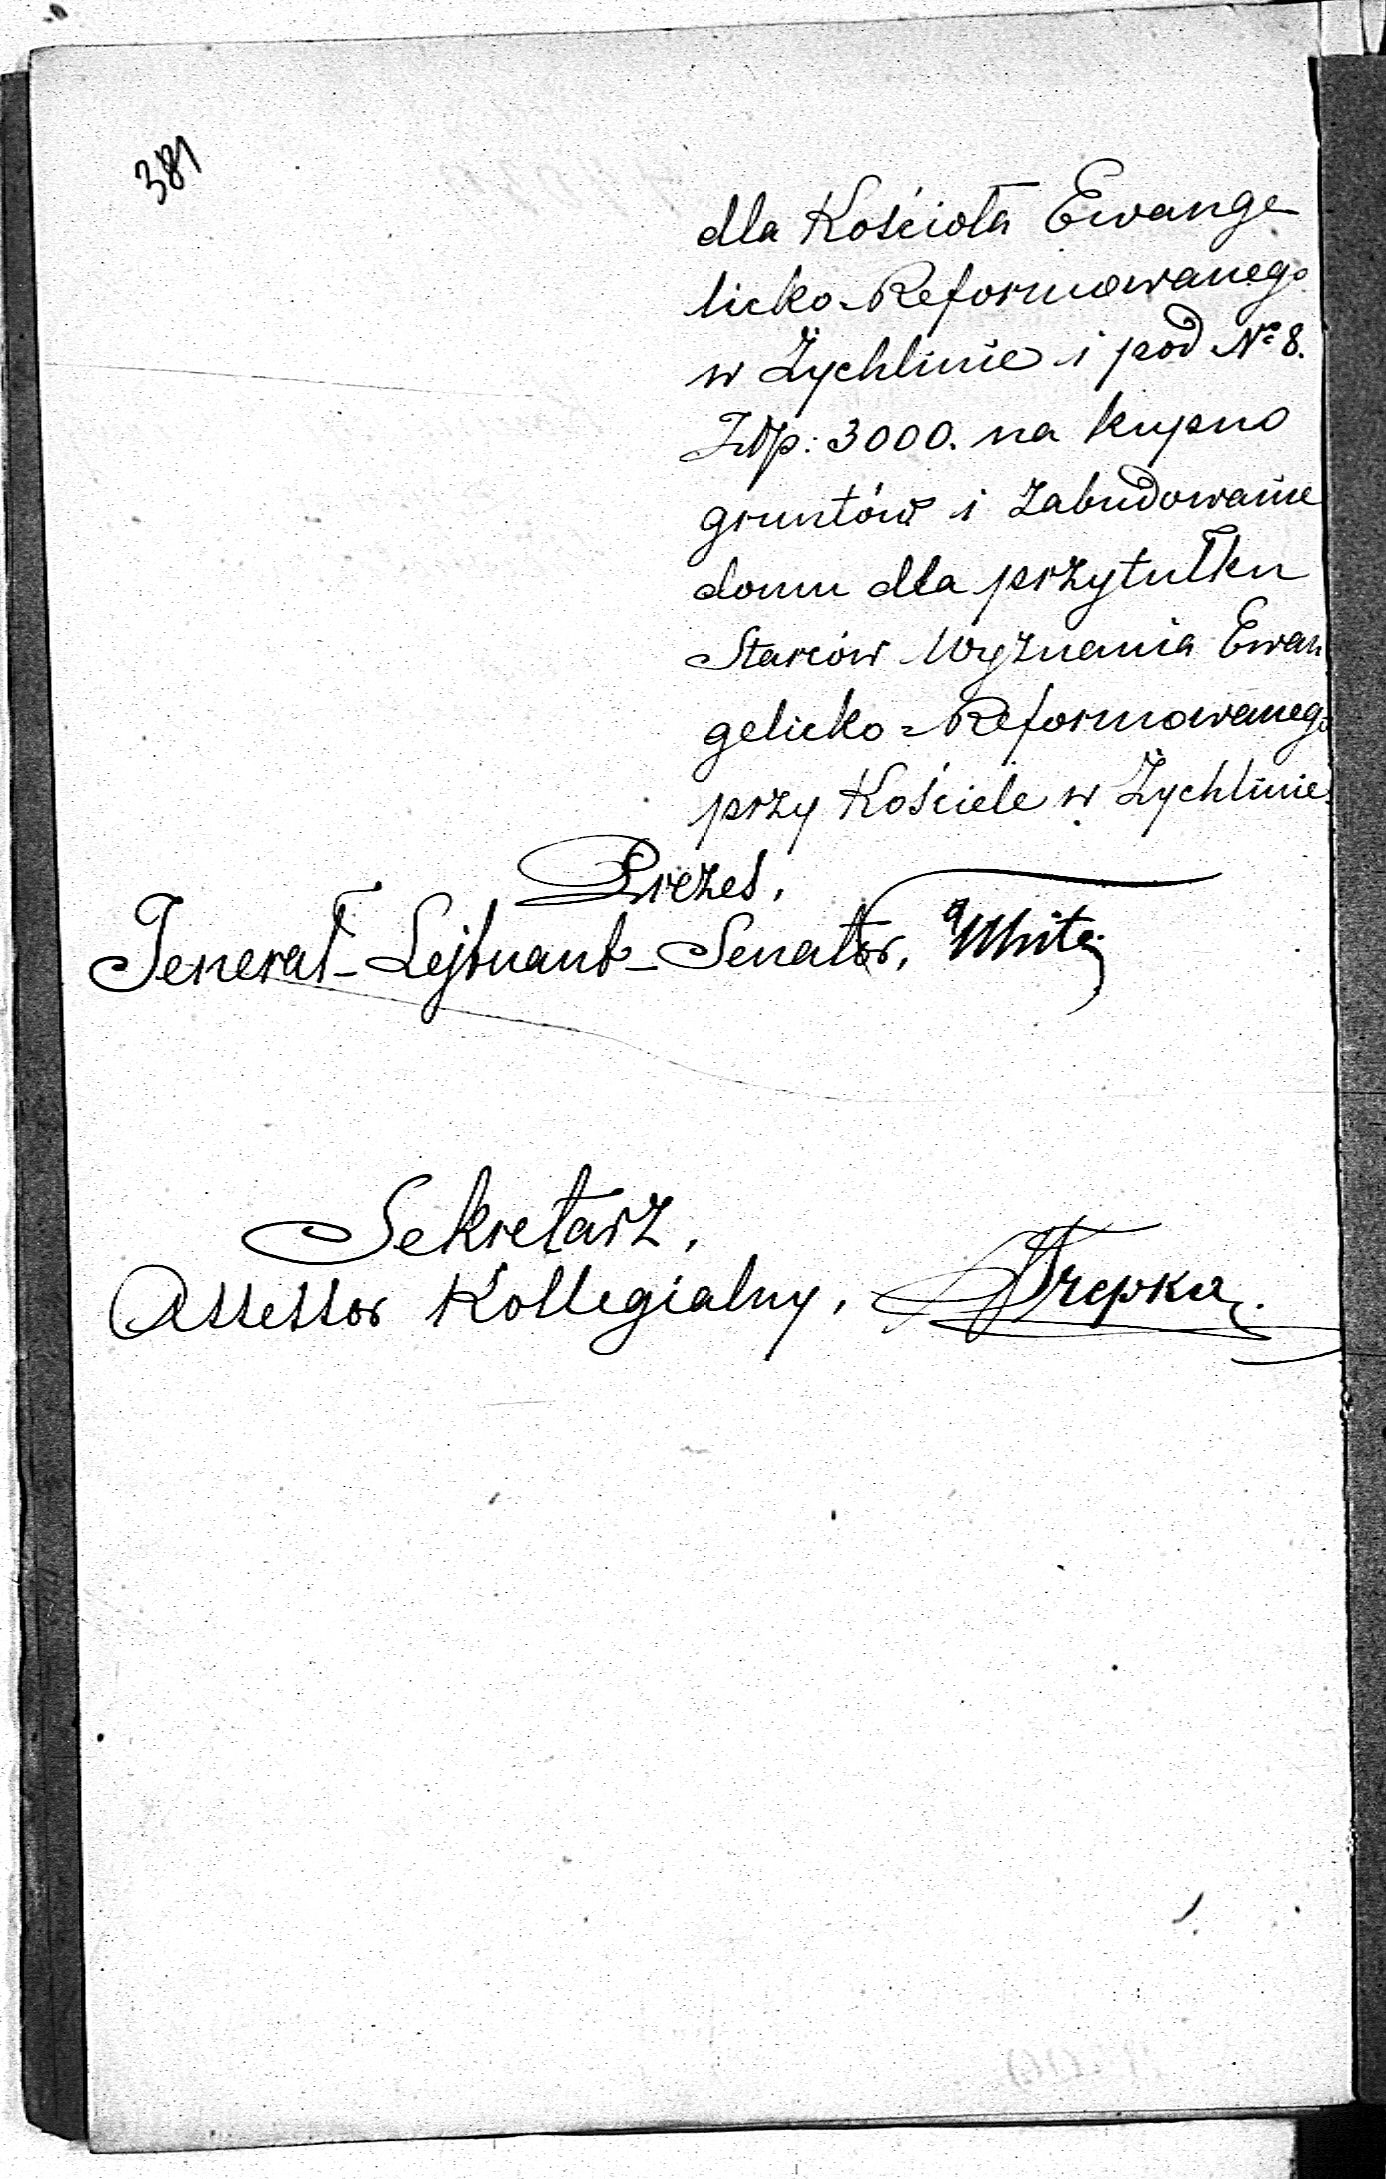 381
dla Kościoła Ewange
licko-Reformowanego
w Żychlinie i pod Nº 8.
Złp: 3000. na kupno
gruntów i zabudowanie
domu dla przytułku
Starców Wyznania Ewan
gelicko-Reformowanego
przy Kościele w Żychlinie.
Prezes,
Jenerał-Lejtnant-Senator, White
Sekretarz,
Assessor Kollegialny, Trepka.